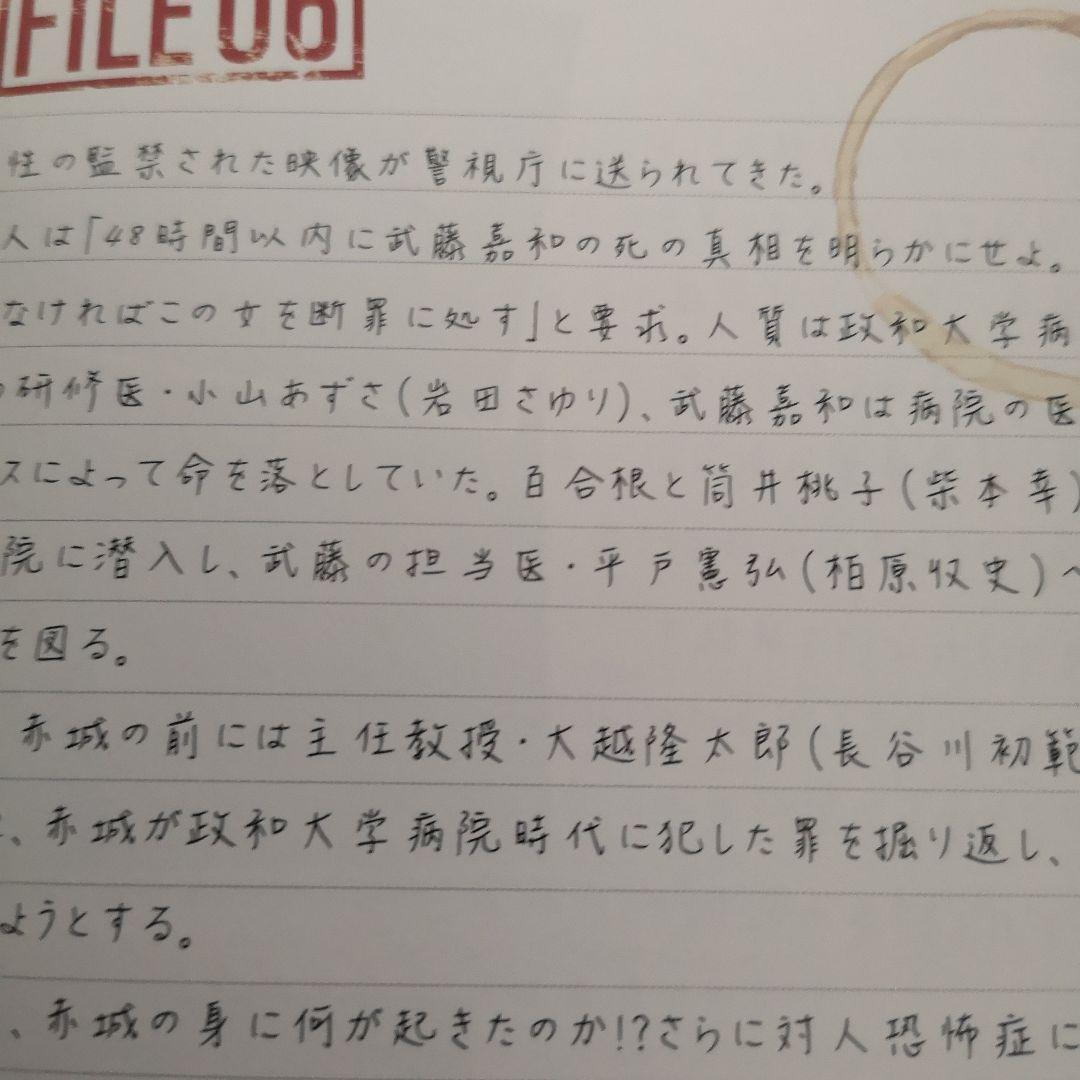 FILE 06
性の監禁された映像が警視庁に送られてきた。
人は「48時間以内に武藤嘉和の死の真相を明らかにせよ。
なければこの女を断罪に処す」と要求。人質は政和大学病
研修医・小山あずさ(岩田さゆり)、武藤嘉和は病院の医
スによって命を落としていた。百合根と筒井桃子(柴本幸)
院に潜入し、武藤の担当医・平戸憲弘(柏原収史)へ
を図る。
赤城の前には主任教授・大越隆太郎(長谷川初範
、赤城が政和大学病院時代に犯した罪を掘り返し、
ようとする。
、赤城の身に何が起きたのか!?さらに対人恐怖症に